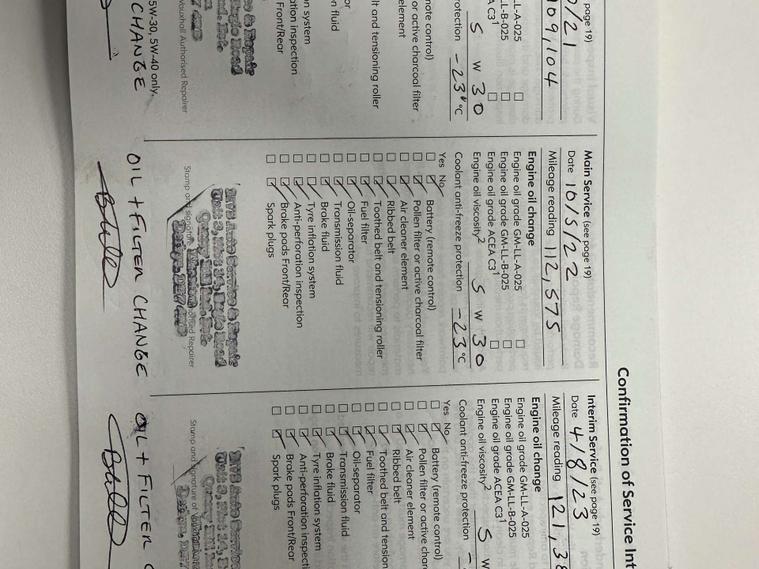 Confirmation of Service Int
page 19)
0/21
109,104
LL-A-025
LL-B-025
A C3¹
5 W 30
protection -23°C
mote control)
or active charcoal filter
element
lt and tensioning roller
or
n fluid
on system
ation inspection
Front/Rear
5W-30, 5W-40 only.
Vauxhall Authorised Repairer
CHANGE
Main Service (see page 19)
Date 10/5/22
Mileage reading 112,575
Engine oil change
Engine oil grade GM-LL-A-025
Engine oil grade GM-LL-B-025
Engine oil grade ACEA C3¹
Engine oil viscosity² 5 W 30
Coolant anti-freeze protection -23°C
Yes No
Battery (remote control)
Pollen filter or active charcoal filter
Air cleaner element
Ribbed belt
Toothed belt and tensioning roller
Fuel filter
Oil-separator
Transmission fluid
Brake fluid
Tyre inflation system
Anti-perforation inspection
Brake pads Front/Rear
Spark plugs
Stamp and signature
OIL + FILTER CHANGE
Interim Service (see page 19)
Date 4/8/23
Mileage reading 121,38
Engine oil change
Engine oil grade GM-LL-A-025
Engine oil grade GM-LL-B-025
Engine oil grade ACEA C3¹
Engine oil viscosity² 5 W
Coolant anti-freeze protection -
Yes No
Battery (remote control)
Pollen filter or active char
Air cleaner element
Ribbed belt
Toothed belt and tension
Fuel filter
Oil-separator
Transmission fluid
Brake fluid
Tyre inflation system
Anti-perforation inspecti
Brake pads Front/Rear
Spark plugs
Stamp and signature of
OIL + FILTER C